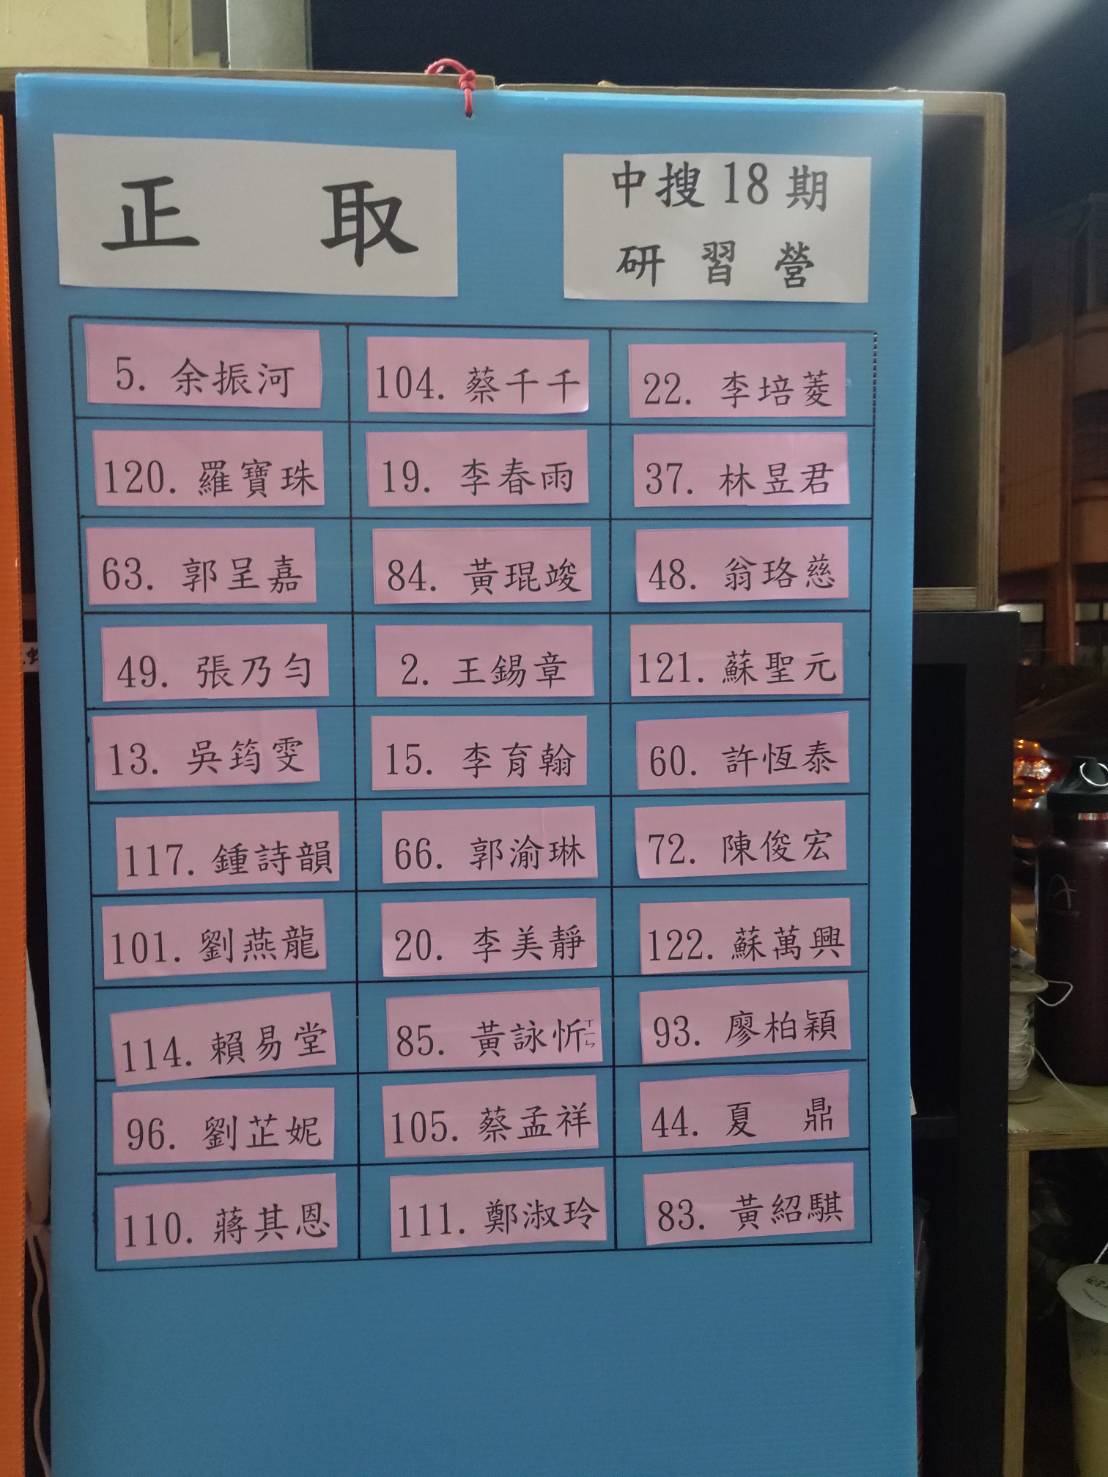 正 取
中搜18期
研習營
5. 余振河 104. 蔡千千 22. 李培菱
120. 羅寶珠 19. 李春雨 37. 林昱君
63. 郭呈嘉 84. 黃琨竣 48. 翁珞慈
49. 張乃勻 2. 王錫章 121. 蘇聖元
13. 吳筠雯 15. 李育翰 60. 許恆泰
117. 鍾詩韻 66. 郭渝琳 72. 陳俊宏
101. 劉燕龍 20. 李美靜 122. 蘇萬興
114. 賴易堂 85. 黃詠忻ㄒㄧㄣ 93. 廖柏穎
96. 劉芷妮 105. 蔡孟祥 44. 夏 鼎
110. 蔣其恩 111. 鄭淑玲 83. 黃紹騏